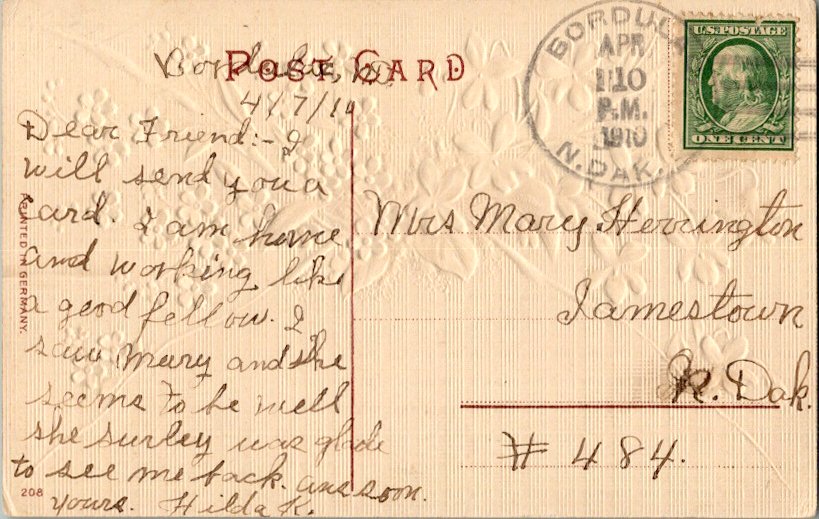 POST CARD
Bordulac, ND
4/7/10
Dear Friend:- I
will send you a
card. I am home
and working like
a good fellow. I
saw Mary and she
seems to be well
she surley was glade
to see me back. ans soon.
Yours. Hilda K.
Mrs Mary Herrington
Jamestown
N. Dak.
# 484.
BORDULAC
APR
10
P.M.
1910
N. DAK.
U.S. POSTAGE
ONE CENT
PRINTED IN GERMANY.
208